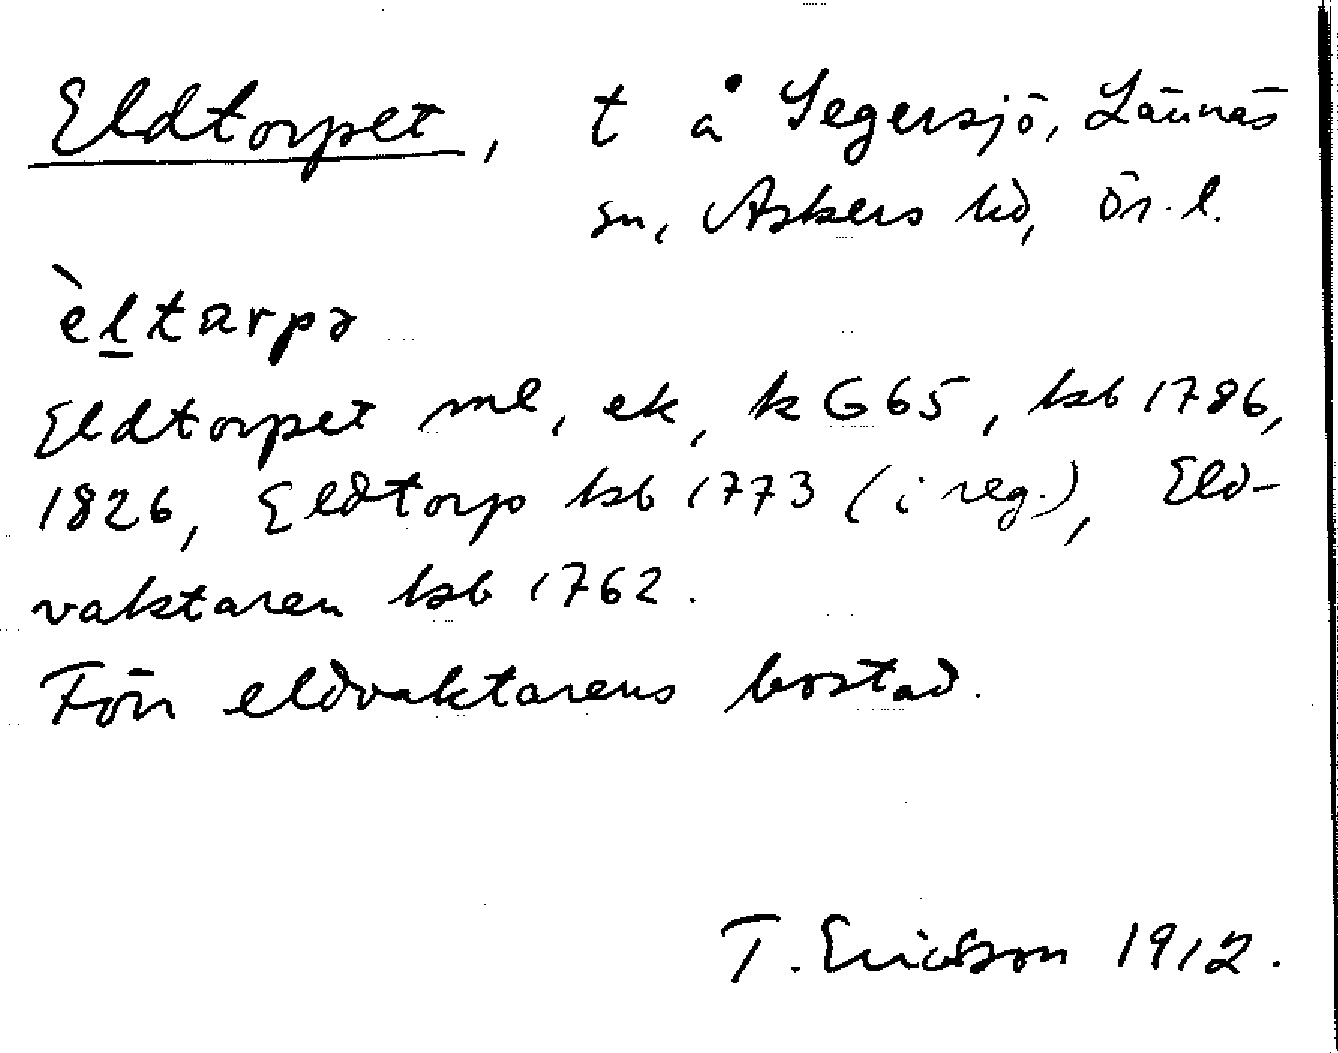 Eldtorpet, t å Segersjö, Lännäs
sn, Askers hd, Ör. l.
èltarpə
Eldtorpet ml, ek, k G65, hsb 1786,
1826, Eldtorp hsb 1773 (i reg.), Eld-
vaktaren hsb 1762.
Förr eldvaktarens bostad.
T. Ericsson 1912.